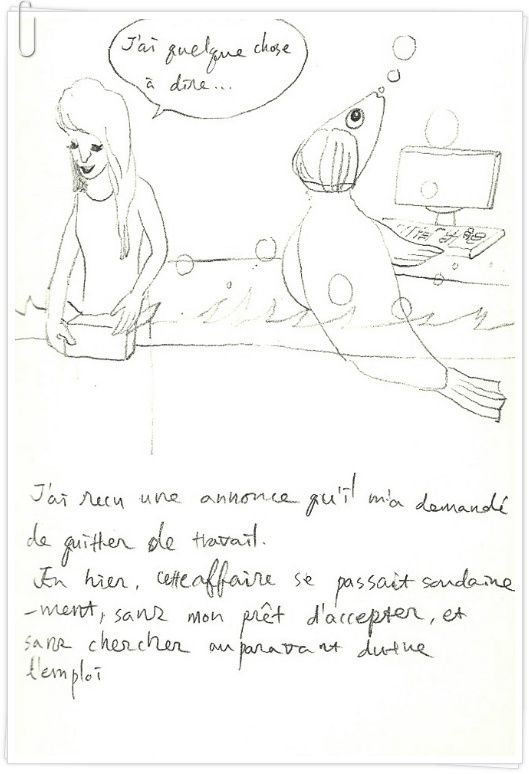 J'ai quelque chose
à dire...
J'ai reçu une annonce qu'il m'a demandé
de quitter de travail.
En hier, cette affaire se passait soudaine
-ment, sans mon prêt d'accepter, et
sans chercher auparavant
l'emploi